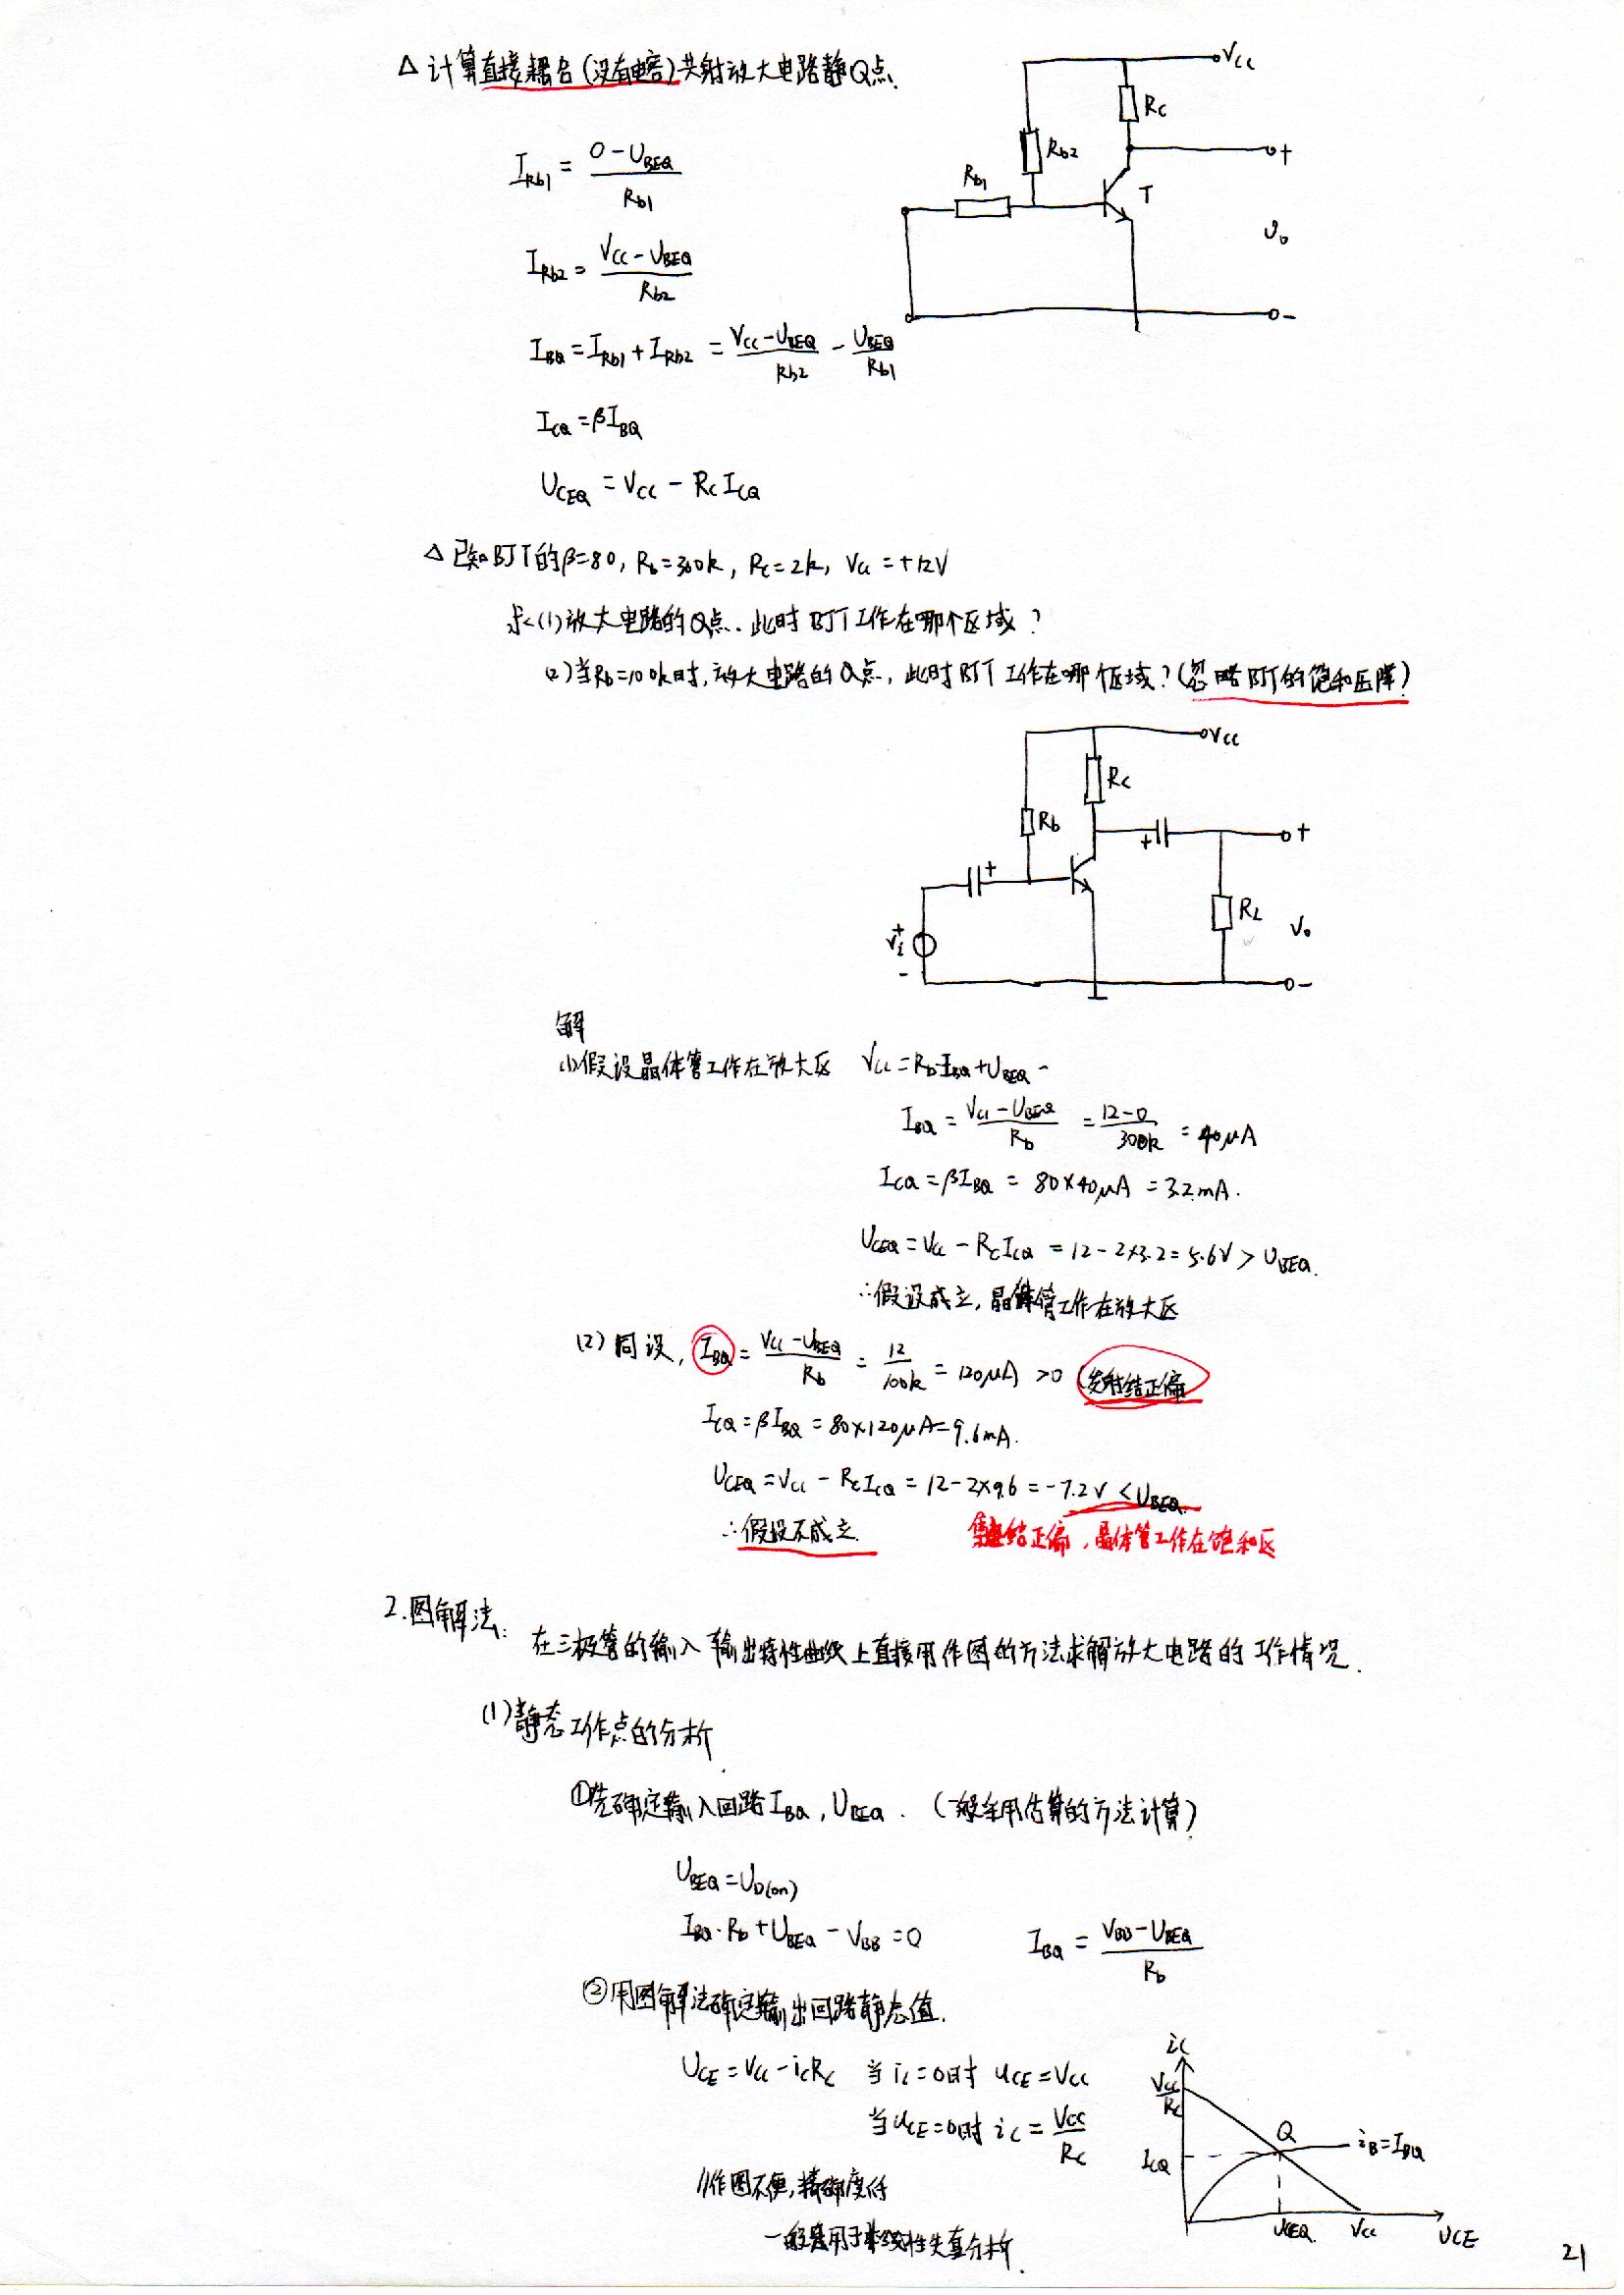 △ 计算直接耦合(没有电容)共射放大电路静Q点.
I_Rb1 = (0-U_BEQ)/R_b1
I_Rb2 = (V_CC-U_BEQ)/R_b2
I_BQ = I_Rb1 + I_Rb2 = (V_CC-U_BEQ)/R_b2 - U_BEQ/R_b1
I_CQ = βI_BQ
U_CEQ = V_CC - R_C I_CQ
V_CC
R_C
R_b2
R_b1
T
+
U_o
-
△ 已知BJT的β=80, R_b=300k, R_C=2k, V_CC=+12V
求(1)放大电路的Q点. 此时BJT工作在哪个区域?
(2)当R_b=100k时, 放大电路的Q点, 此时BJT工作在哪个区域? (忽略BJT的饱和压降)
V_CC
R_C
R_b
+
+
+
R_L
V_o
V_i
+
-
-
解
(1)假设晶体管工作在放大区 V_CC = R_b I_BQ + U_BEQ
I_BQ = (V_CC-U_BEQ)/R_b = (12-0)/300k = 40μA
I_CQ = βI_BQ = 80×40μA = 3.2mA.
U_CEQ = V_CC - R_C I_CQ = 12-2×3.2 = 5.6V > U_BEQ.
∴假设成立, 晶体管工作在放大区
(2) 同设, I_BQ = (V_CC-U_BEQ)/R_b = 12/100k = 120μA >0 (发射结正偏
I_CQ = βI_BQ = 80×120μA = 9.6mA.
U_CEQ = V_CC - R_C I_CQ = 12-2×9.6 = -7.2V < U_BEQ.
∴假设不成立. 集电结正偏, 晶体管工作在饱和区
2.图解法: 在三极管的输入 输出特性曲线上直接用作图的方法求解放大电路的工作情况.
(1)静态工作点的分析
①先确定输入回路I_BQ, U_BEQ. (一般采用估算的方法计算)
U_BEQ = U_D(on)
I_BQ·R_b + U_BEQ - V_BB = 0 I_BQ = (V_BB-U_BEQ)/R_b
②用图解法确定输出回路静态值.
U_CE = V_CC - i_C R_C 当i_C=0时 u_CE=V_CC
当u_CE=0时 i_C = V_CC/R_C
//作图不便, 精确度低
一般是用于非线性失真分析.
i_C
V_CC/R_C
Q
i_B=I_BQ
I_CQ
U_CEQ
V_CC
U_CE
21